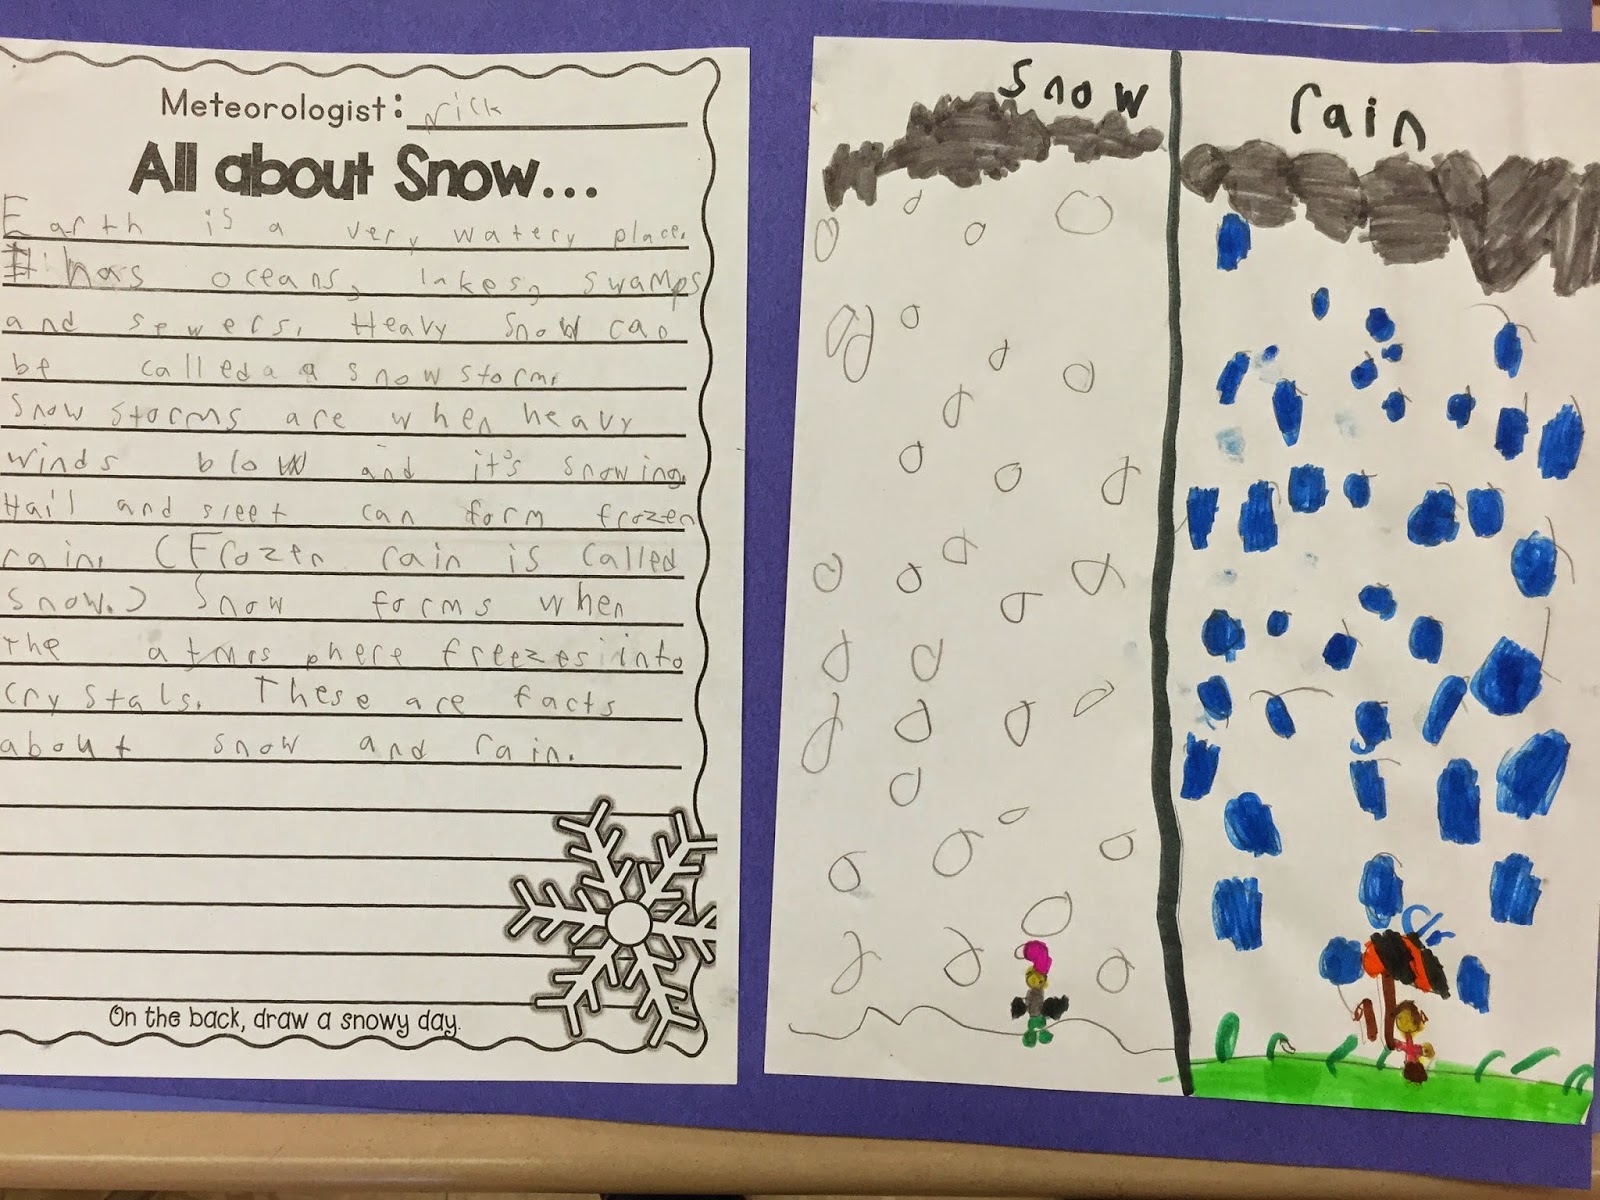 Meteorologist: rick
All about Snow...
Earth is a very watery place.
It has oceans, lakes, swamps
and sewers. Heavy snow can
be called a a snow storm.
Snow storms are when heavy
winds blow and it's snowing.
Hail and sleet can form frozen
rain. (Frozen rain is called
snow.) Snow forms when
the atmosphere freezes into
crystals. These are facts
about snow and rain.
On the back, draw a snowy day.
Snow
rain